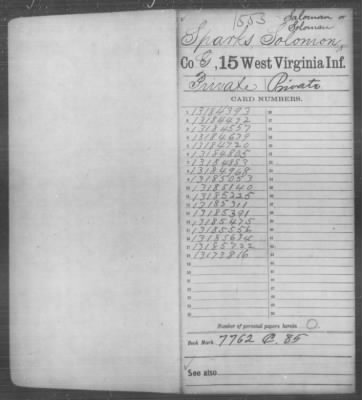 1553
Saloman or
Soloman
Sparks Solomon
Co G, 15 West Virginia Inf.
Private Private
CARD NUMBERS.
1 13184393
2 13184472
3 13184557
4 13184639
5 13184720
6 13184805
7 13184887
8 13184969
9 13185053
10 13185140
11 13185225
12 13185311
13 13185391
14 13185475
15 13185556
16 13185634
17 13185722
18 13173816
Number of personal papers herein 0
Book Mark: 7762 C. 85
See also